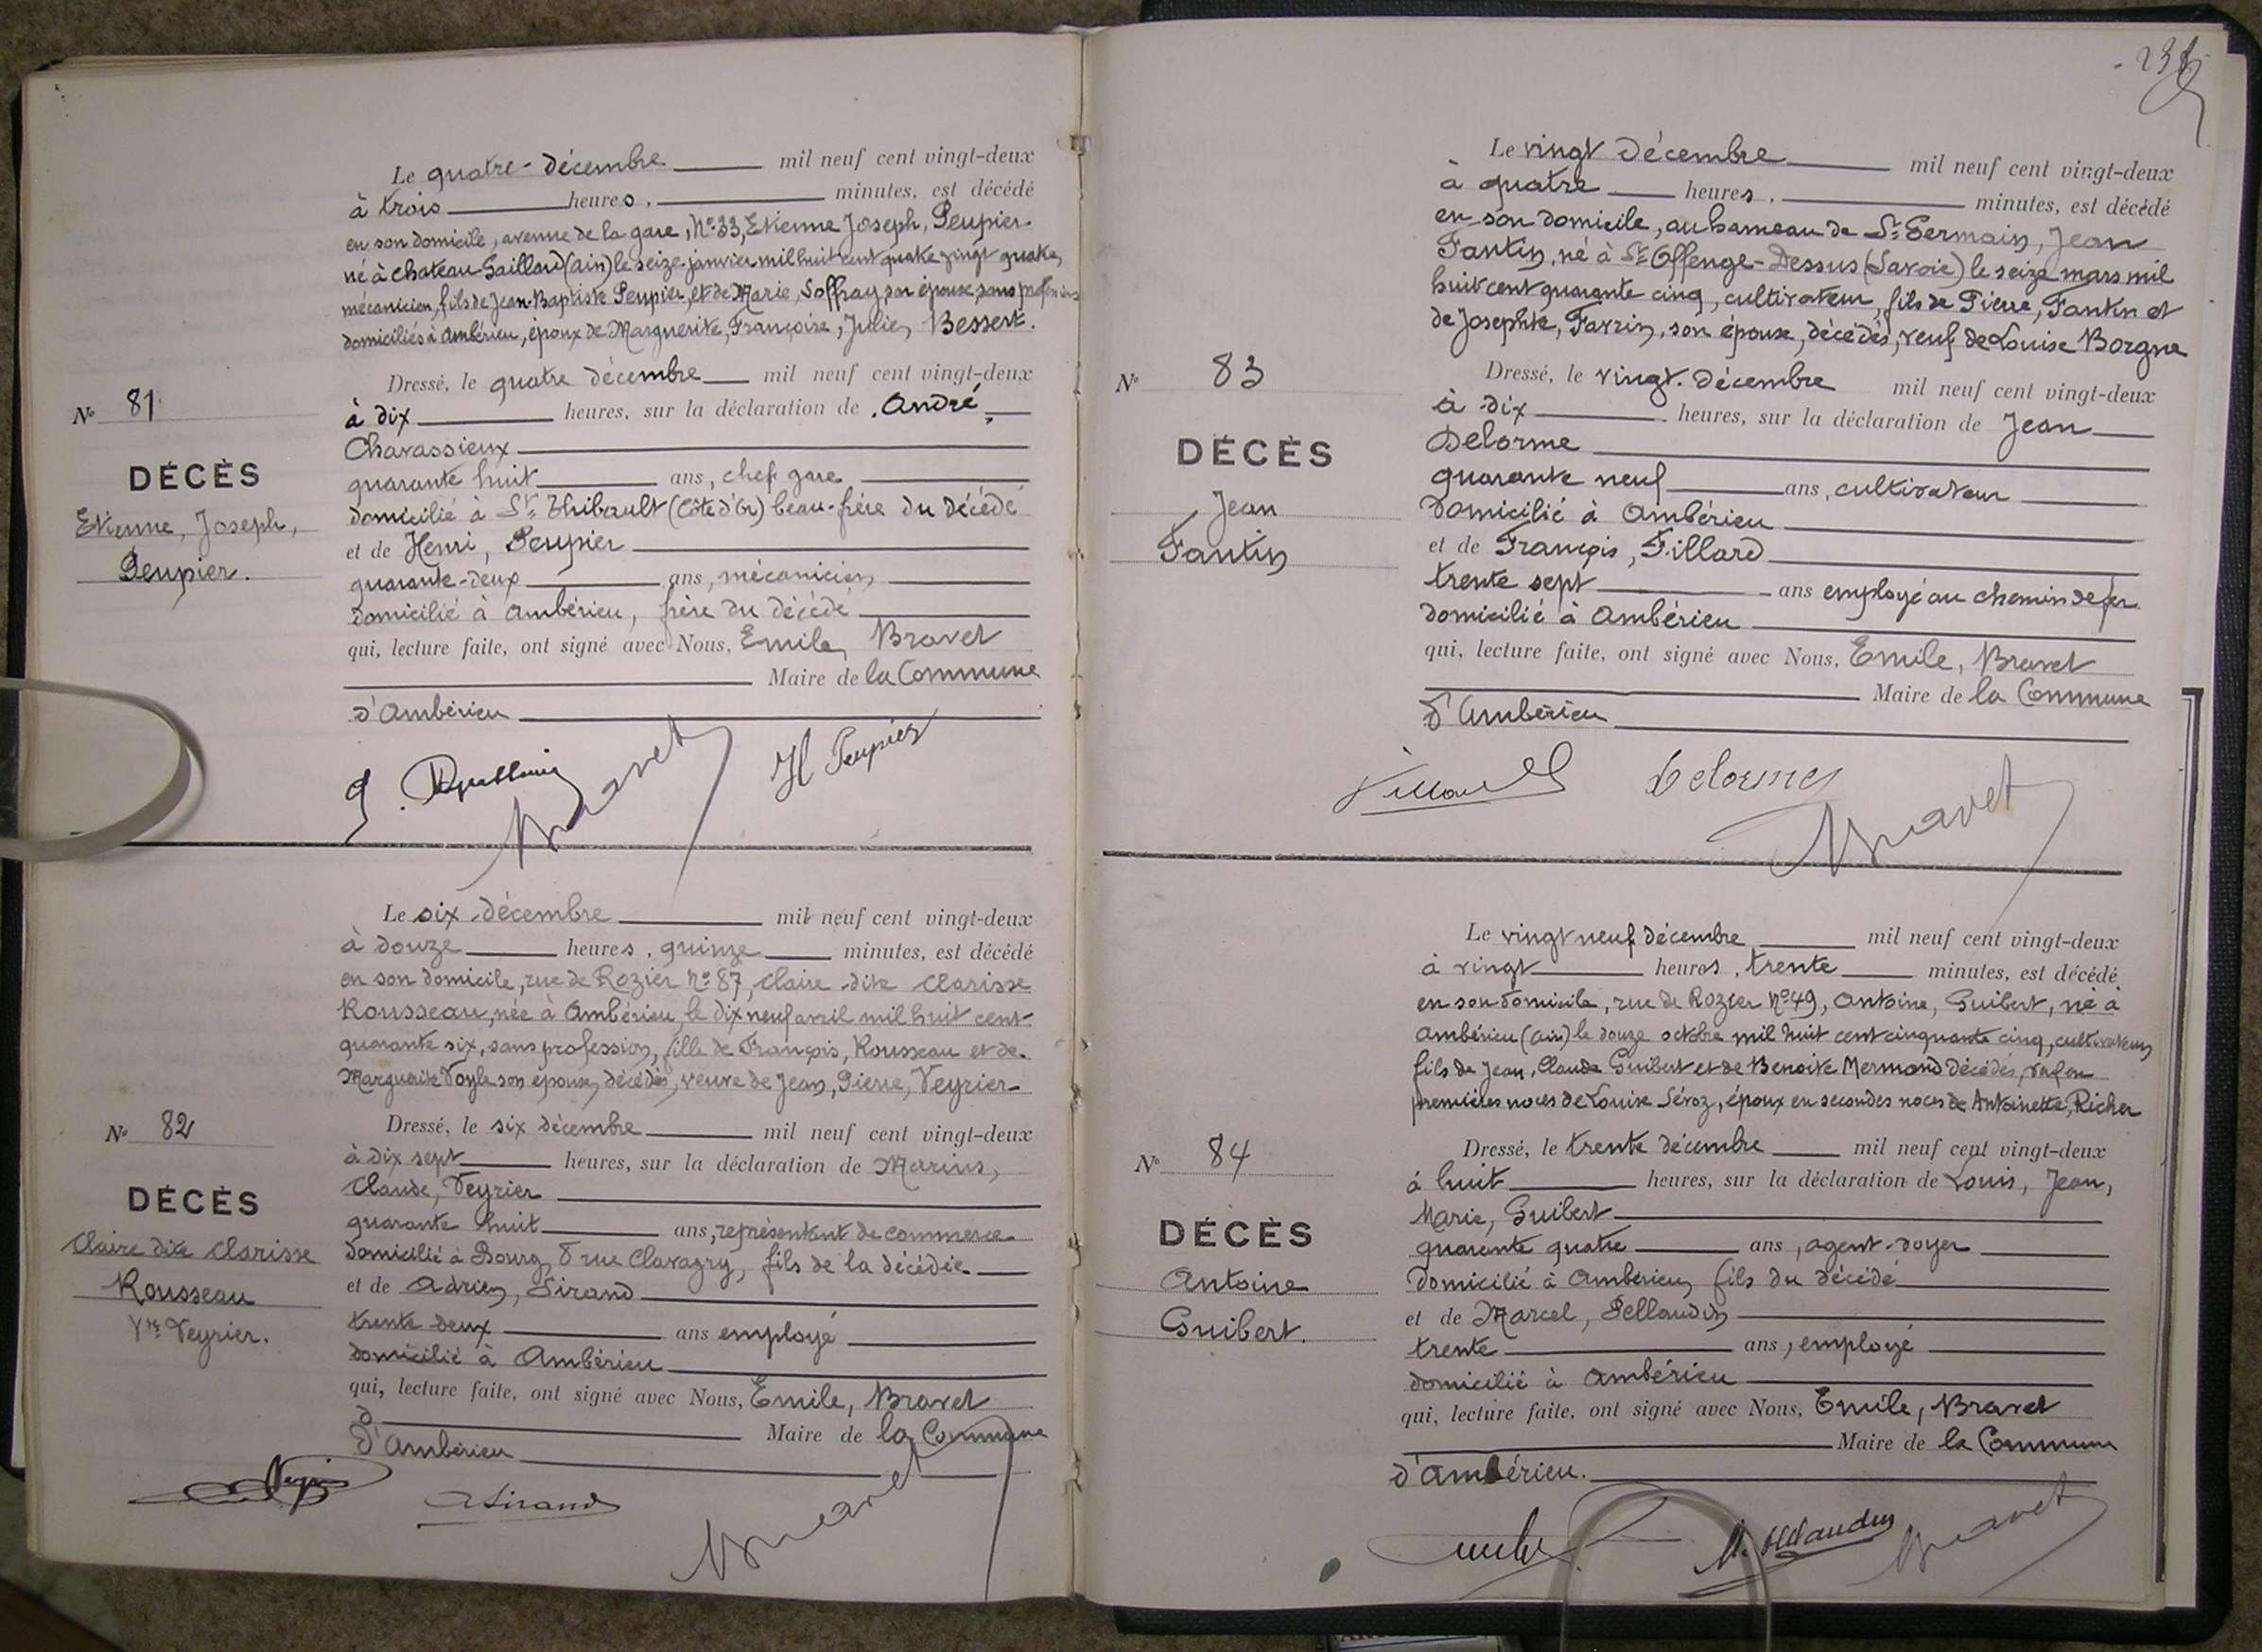 Le quatre décembre mil neuf cent vingt-deux
à trois heures, minutes, est décédé
en son domicile, avenue de la gare, N° 33, Etienne Joseph, Peupier.
né à Chateau-Gaillard (ain) le seize janvier mil huit cent quatre vingt quatre,
mécanicien, fils de Jean-Baptiste Peupier, et de Marie, Soffray son épouse, sans profession
domiciliés à Ambérieu, époux de Marguerite, Françoise, Julie, Bessert.
Dressé, le quatre décembre mil neuf cent vingt-deux
à dix heures, sur la déclaration de André,
Chavassieux
quarante huit ans, chef gare
domicilié à St Thibault (Côte d'Or) beau-frère du décédé
et de Henri, Peupier
quarante-deux ans, mécanicien
domicilié à Ambérieu, frère du décédé
qui, lecture faite, ont signé avec Nous, Emile, Bravet
Maire de la Commune
d'Ambérieu
N° 81
DÉCÈS
Etienne, Joseph,
Peupier.
Bravet
H Peupier
Le six décembre mil neuf cent vingt-deux
à douze heures, quinze minutes, est décédé
en son domicile, rue de Rozier N° 87, Claire dite Clarisse
Rousseau, née à Ambérieu, le dix neuf avril mil huit cent
quarante six, sans profession, fille de François, Rousseau et de
Marguerite Voyle son épouse, décédés, veuve de Jean, Pierre, Veyrier
Dressé, le six décembre mil neuf cent vingt-deux
à dix sept heures, sur la déclaration de Marius,
Claude, Veyrier
quarante huit ans, représentant de commerce
domicilié à Bourg, 8 rue Clavagry, fils de la décédée
et de Adrien, Sirand
trente deux ans employé
domicilié à Ambérieu
qui, lecture faite, ont signé avec Nous, Emile, Bravet
d
Maire de la Commune
d'Ambérieu
N° 82
DÉCÈS
Claire dite Clarisse
Rousseau
Vve Veyrier.
A Sirand
Bravet
Le vingt décembre mil neuf cent vingt-deux
à quatre heures, minutes, est décédé
en son domicile, au hameau de St Germain, Jean
Fantin, né à St Offenge-Dessus (Savoie) le seize mars mil
huit cent quarante cinq, cultivateur, fils de Pierre, Fantin et
de Josephte, Favrin, son épouse, décédés, veuf de Louise Borgne
Dressé, le vingt décembre mil neuf cent vingt-deux
à dix heures, sur la déclaration de Jean
Delorme
quarante neuf ans, cultivateur
domicilié à Ambérieu
et de François, Fillard
trente sept ans employé au chemin de fer
domicilié à Ambérieu
qui, lecture faite, ont signé avec Nous, Emile, Bravet
Maire de la Commune
d'Ambérieu
N° 83
DÉCÈS
Jean
Fantin
Delorme
Bravet
Le vingt neuf décembre mil neuf cent vingt-deux
à vingt heures, trente minutes, est décédé
en son domicile, rue de Rozier N° 49, Antoine, Guibert, né à
Ambérieu (ain) le douze octobre mil huit cent cinquante cinq, cultivateur,
fils de Jean, Claude Guibert et de Benoite Mermand décédés, veuf en
premières noces de Louise Sévoz, époux en secondes noces de Antoinette, Richer
Dressé, le trente décembre mil neuf cent vingt-deux
à huit heures, sur la déclaration de Louis, Jean,
Marie, Guibert
quarante quatre ans, agent-voyer
domicilié à Ambérieu, fils du décédé
et de Marcel, Pellaudin
trente ans, employé
domicilié à Ambérieu
qui, lecture faite, ont signé avec Nous, Emile, Bravet
Maire de la Commune
d'Ambérieu.
N° 84
DÉCÈS
Antoine
Guibert.
M. Pellaudin
Bravet